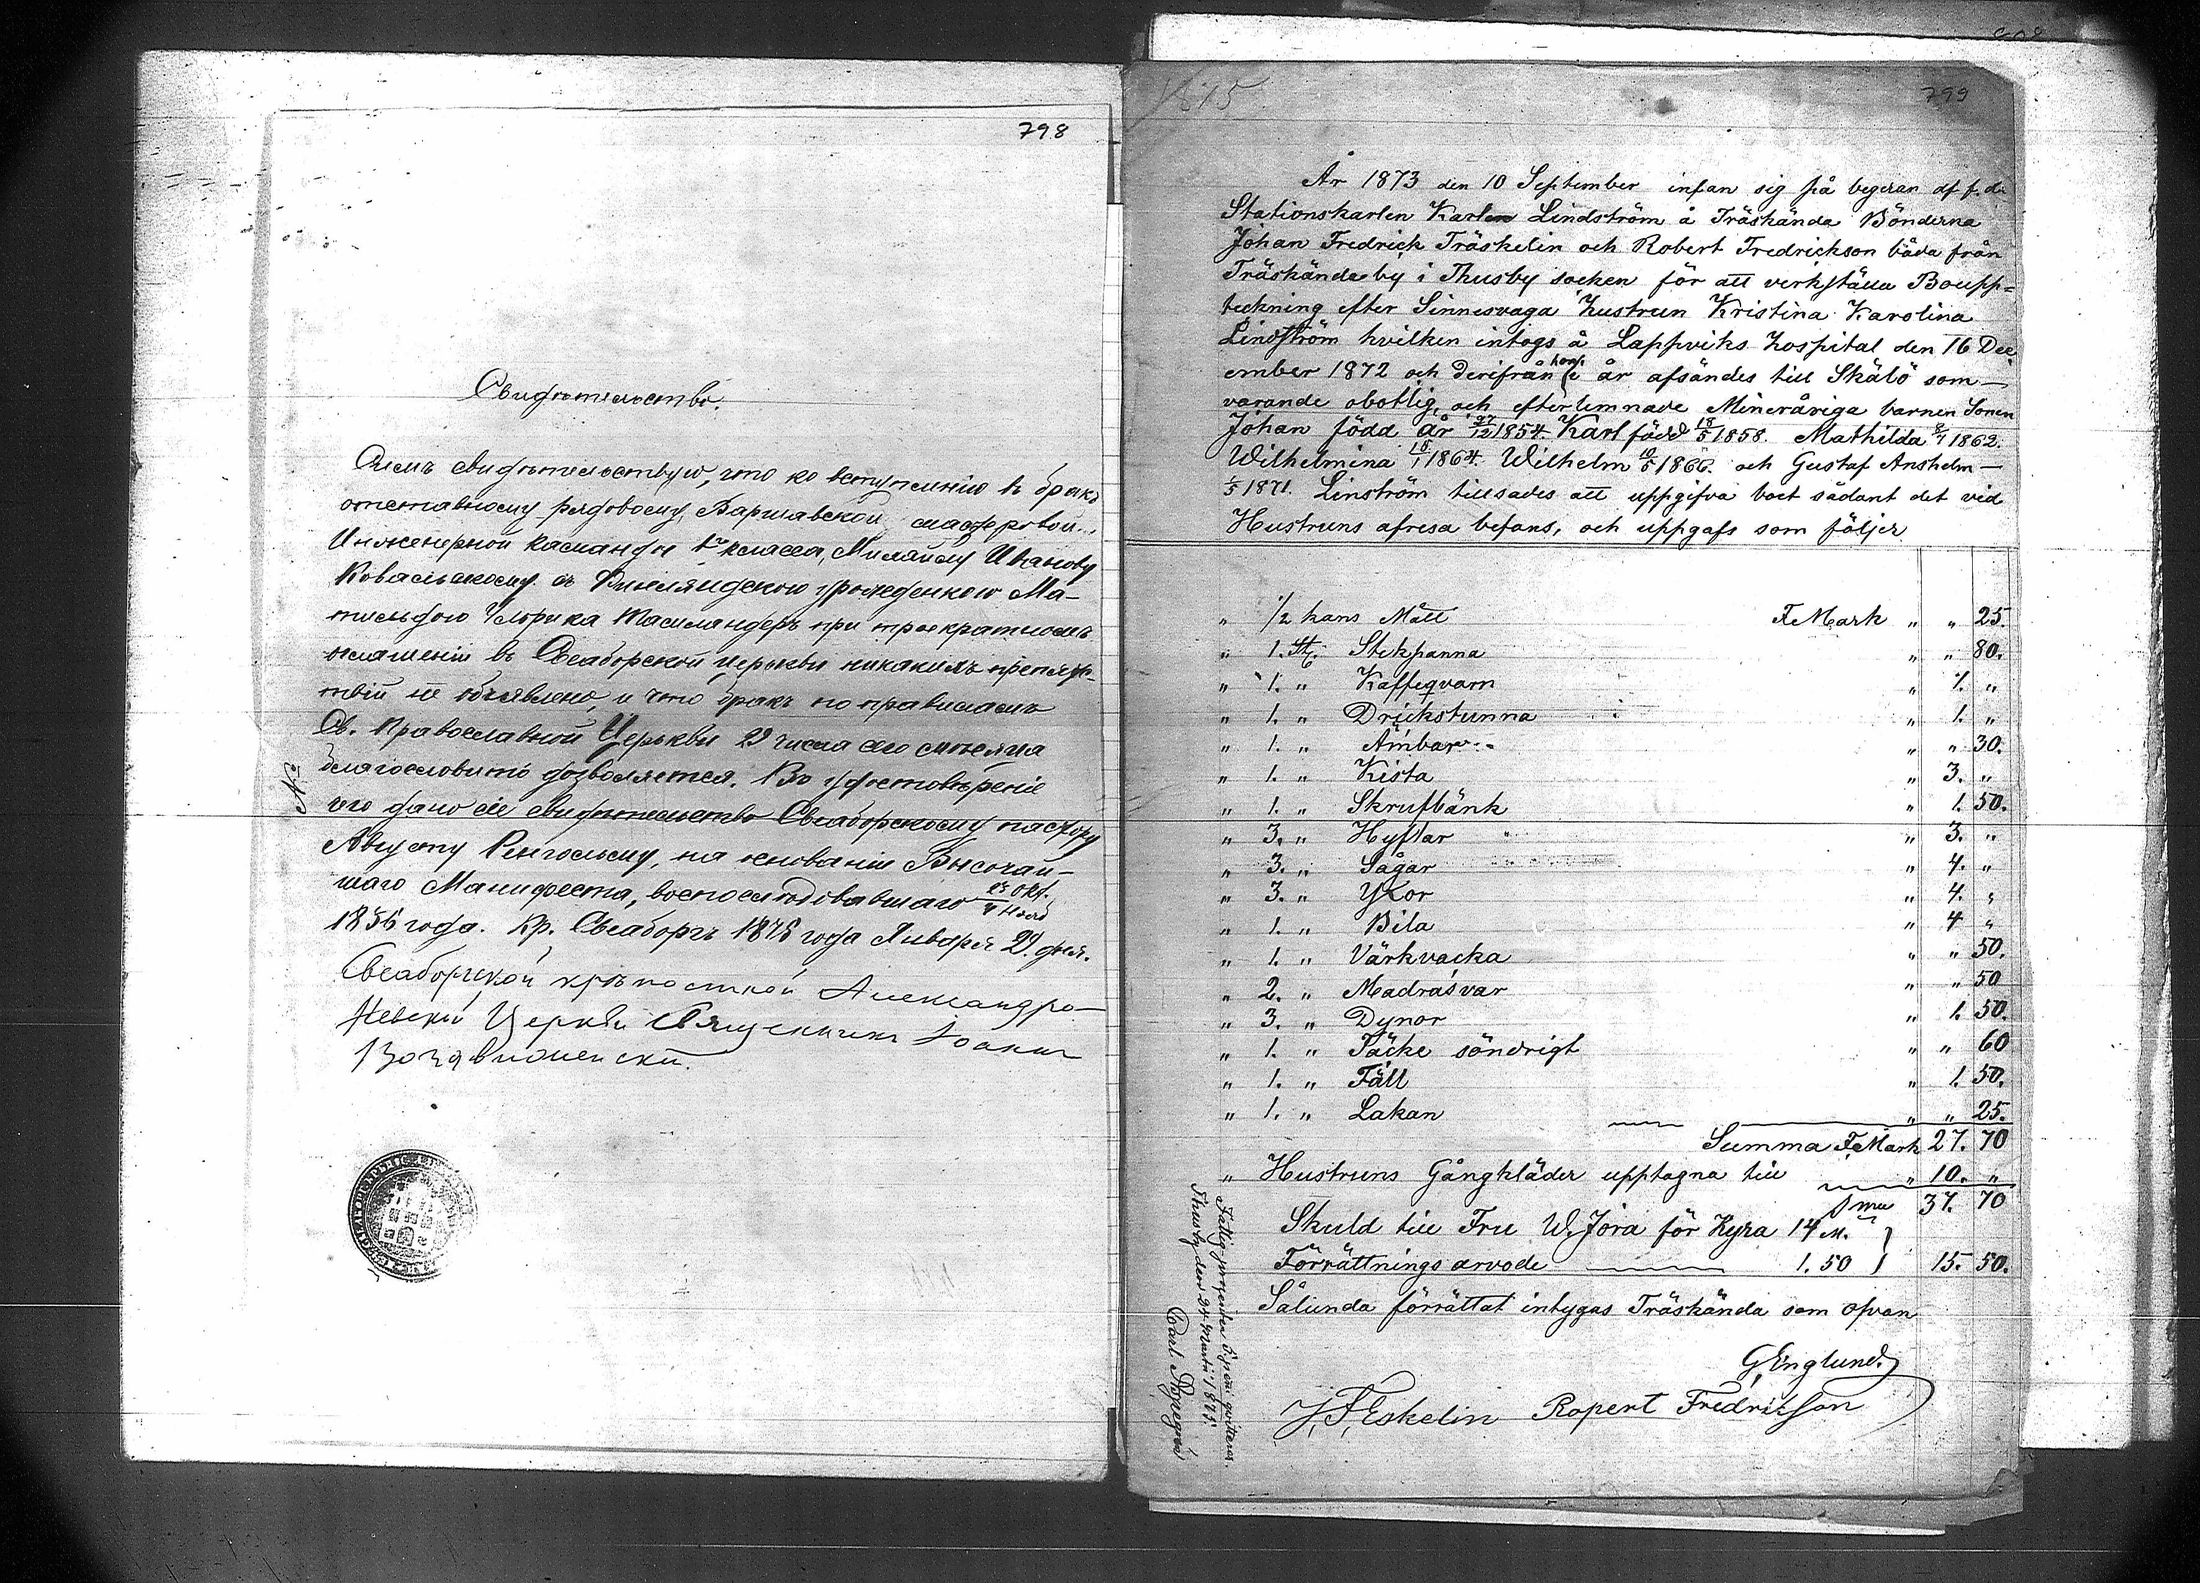 798
Свидѣтельство.
Симъ свидѣтельствую, что ко вступленію въ бракъ
отставному рядовому, Варшавской мастеровой
Инженерной команды 1го класса, Ивановy
Ковальскому съ Финляндскою урожденкою Ма-
тильдою Ульрика при троекратномъ
оглашеніи въ Свеаборской церкви никакихъ препят-
ствій не объявлено, и что бракъ по правиламъ
Св. Православной Церкви 29 числа сего мѣсяца
благословить дозволяется. Во удостовѣреніе
чего дано сіе свидѣтельство Свеаборскому пастору
Августу, на основаніи Высочай-
шаго Манифеста, воспослѣдовавшаго 23 Окт./4 Нояб
1856 года. Кр. Свеаборгъ 1875 года Января 29 дня.
Свеаборгской крѣпостной Александро-
Невской Церкви Священникъ Іоаннъ
№
1875
799
År 1873 den 10 September infan sig på begeran af f. d.
Stationskarlen Karl Lindström å Träskända Bönderna
Johan Fredrick Träskelin och Robert Fredrickson båda från
Träskända by i Thusby socken för att verkställa Boupp=
teckning efter Sinnesvaga hustrun Kristina Karolina
Lindström hvilken intogs å Lappviks hospital den 16 Dec
ember 1872 och derifrån i år afsändes till Skälö som —
varande obotlig, och efterlemnade Mineråriga barnen Sonen
Johan född år 27/12 1854. Karl född 18/5 1858. Mathilda 8/7 1862.
Wilhelmina 15/1 1864. Wilhelm 10/5 1866. och Gustaf Anshelm —
1/5 1871. Linström tillsades att uppgifva boet sådant det vid
Hustruns afresa befans, och uppgafs som följer
" 1/2 kans Mått F.Mark " " 25.
" 1. St. Stekpanna " " 80.
" 1. " Kaffeqvarn " 1. "
" 1. " Drickstunna " 1. "
" 1. " Ämbar " " 30.
" 1. " Kista " 3. "
" 1. " Skrufbänk " 1. 50.
" 3. " Hyflar " 3. "
" 3. " Sågar " 4. "
" 3. " Yxor " 4. "
" 1. " Bila " 4 "
" 1. " Värkvacka " " 50.
" 2. " Madrasvar " " 50
" 3. " Dynor " 1. 50.
" 1. " Täcke söndrigt " " 60
" 1. " Fäll " 1. 50.
" 1. " Lakan " " 25.
Summa F.Mark 27. 70
" Hustruns Gångkläder upptagna till " 10. "
Smu 37. 70
Skuld till Fru W. Jöra för Hyra 14 M.
Förrättnings arvode 1. 50 } 15. 50.
Sålunda förrättat intygas Träskända som ofvan
G Englund.
J. F. Eskelin Ropert Fredrikson
Fattig procenten qvitteras.
Thusby den 24 Martii 1875.
Carl